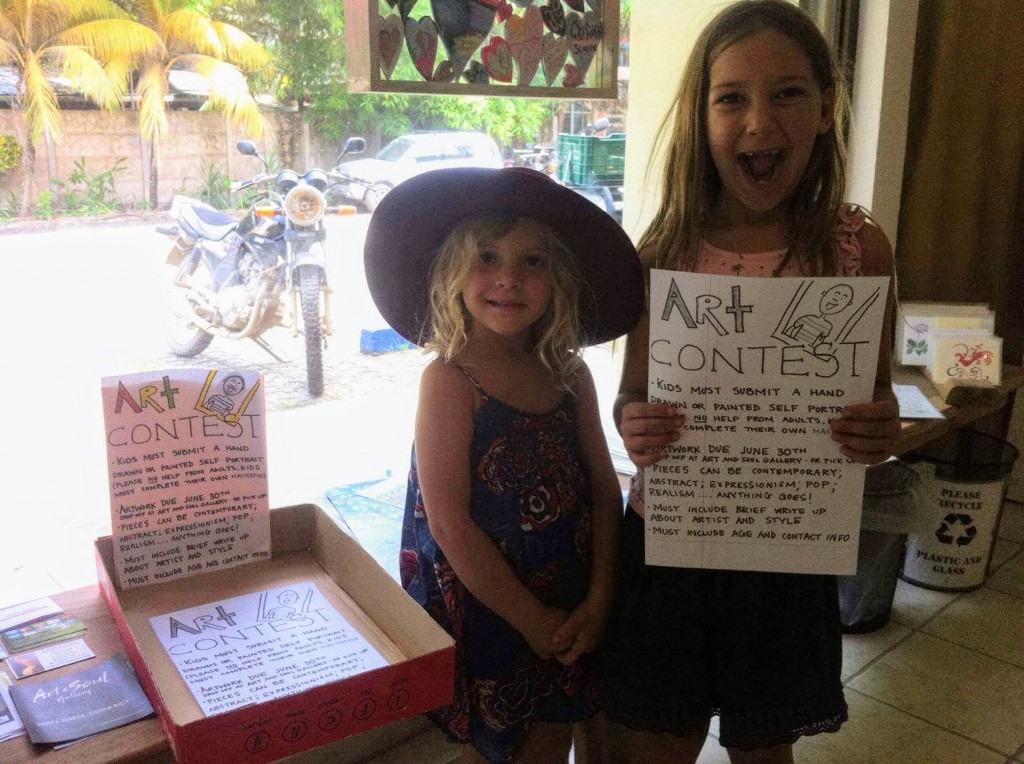 ART
CONTEST
• KIDS MUST SUBMIT A HAND
DRAWN OR PAINTED SELF PORTRAIT
(PLEASE NO HELP FROM ADULTS, KIDS
MUST COMPLETE THEIR OWN MASTERPIECE
• ARTWORK DUE JUNE 30TH
DROP OFF AT ART AND SOUL GALLERY - OR PICK UP
• PIECES CAN BE CONTEMPORARY;
ABSTRACT; EXPRESSIONISM; POP;
REALISM .... ANYTHING GOES!
• MUST INCLUDE BRIEF WRITE UP
ABOUT ARTIST AND STYLE
• MUST INCLUDE AGE AND CONTACT INFO
ART
CONTEST
• KIDS MUST SUBMIT A HAND
DRAWN OR PAINTED SELF PORTRAIT
(PLEASE NO HELP FROM ADULTS, KIDS
ARTWORK DUE JUNE 30TH
DROP OFF AT ART AND SOUL GALLERY - OR PICK UP
• PIECES CAN BE CONTEMPORARY;
ABSTRACT; EXPRESSIONISM
Art & Soul
gallery
ART
CONTEST
• KIDS MUST SUBMIT A HAND
DRAWN OR PAINTED SELF PORTR
NO HELP FROM ADULTS, K
COMPLETE THEIR OWN MAS
ARTWORK DUE JUNE 30TH
OFF AT ART AND SOUL GALLERY - OR PICK U
PIECES CAN BE CONTEMPORARY;
ABSTRACT; EXPRESSIONISM; POP;
REALISM .... ANYTHING GOES!
• MUST INCLUDE BRIEF WRITE UP
ABOUT ARTIST AND STYLE
• MUST INCLUDE AGE AND CONTACT INFO
PLEASE
RECYCLE
PLASTIC AND
GLASS